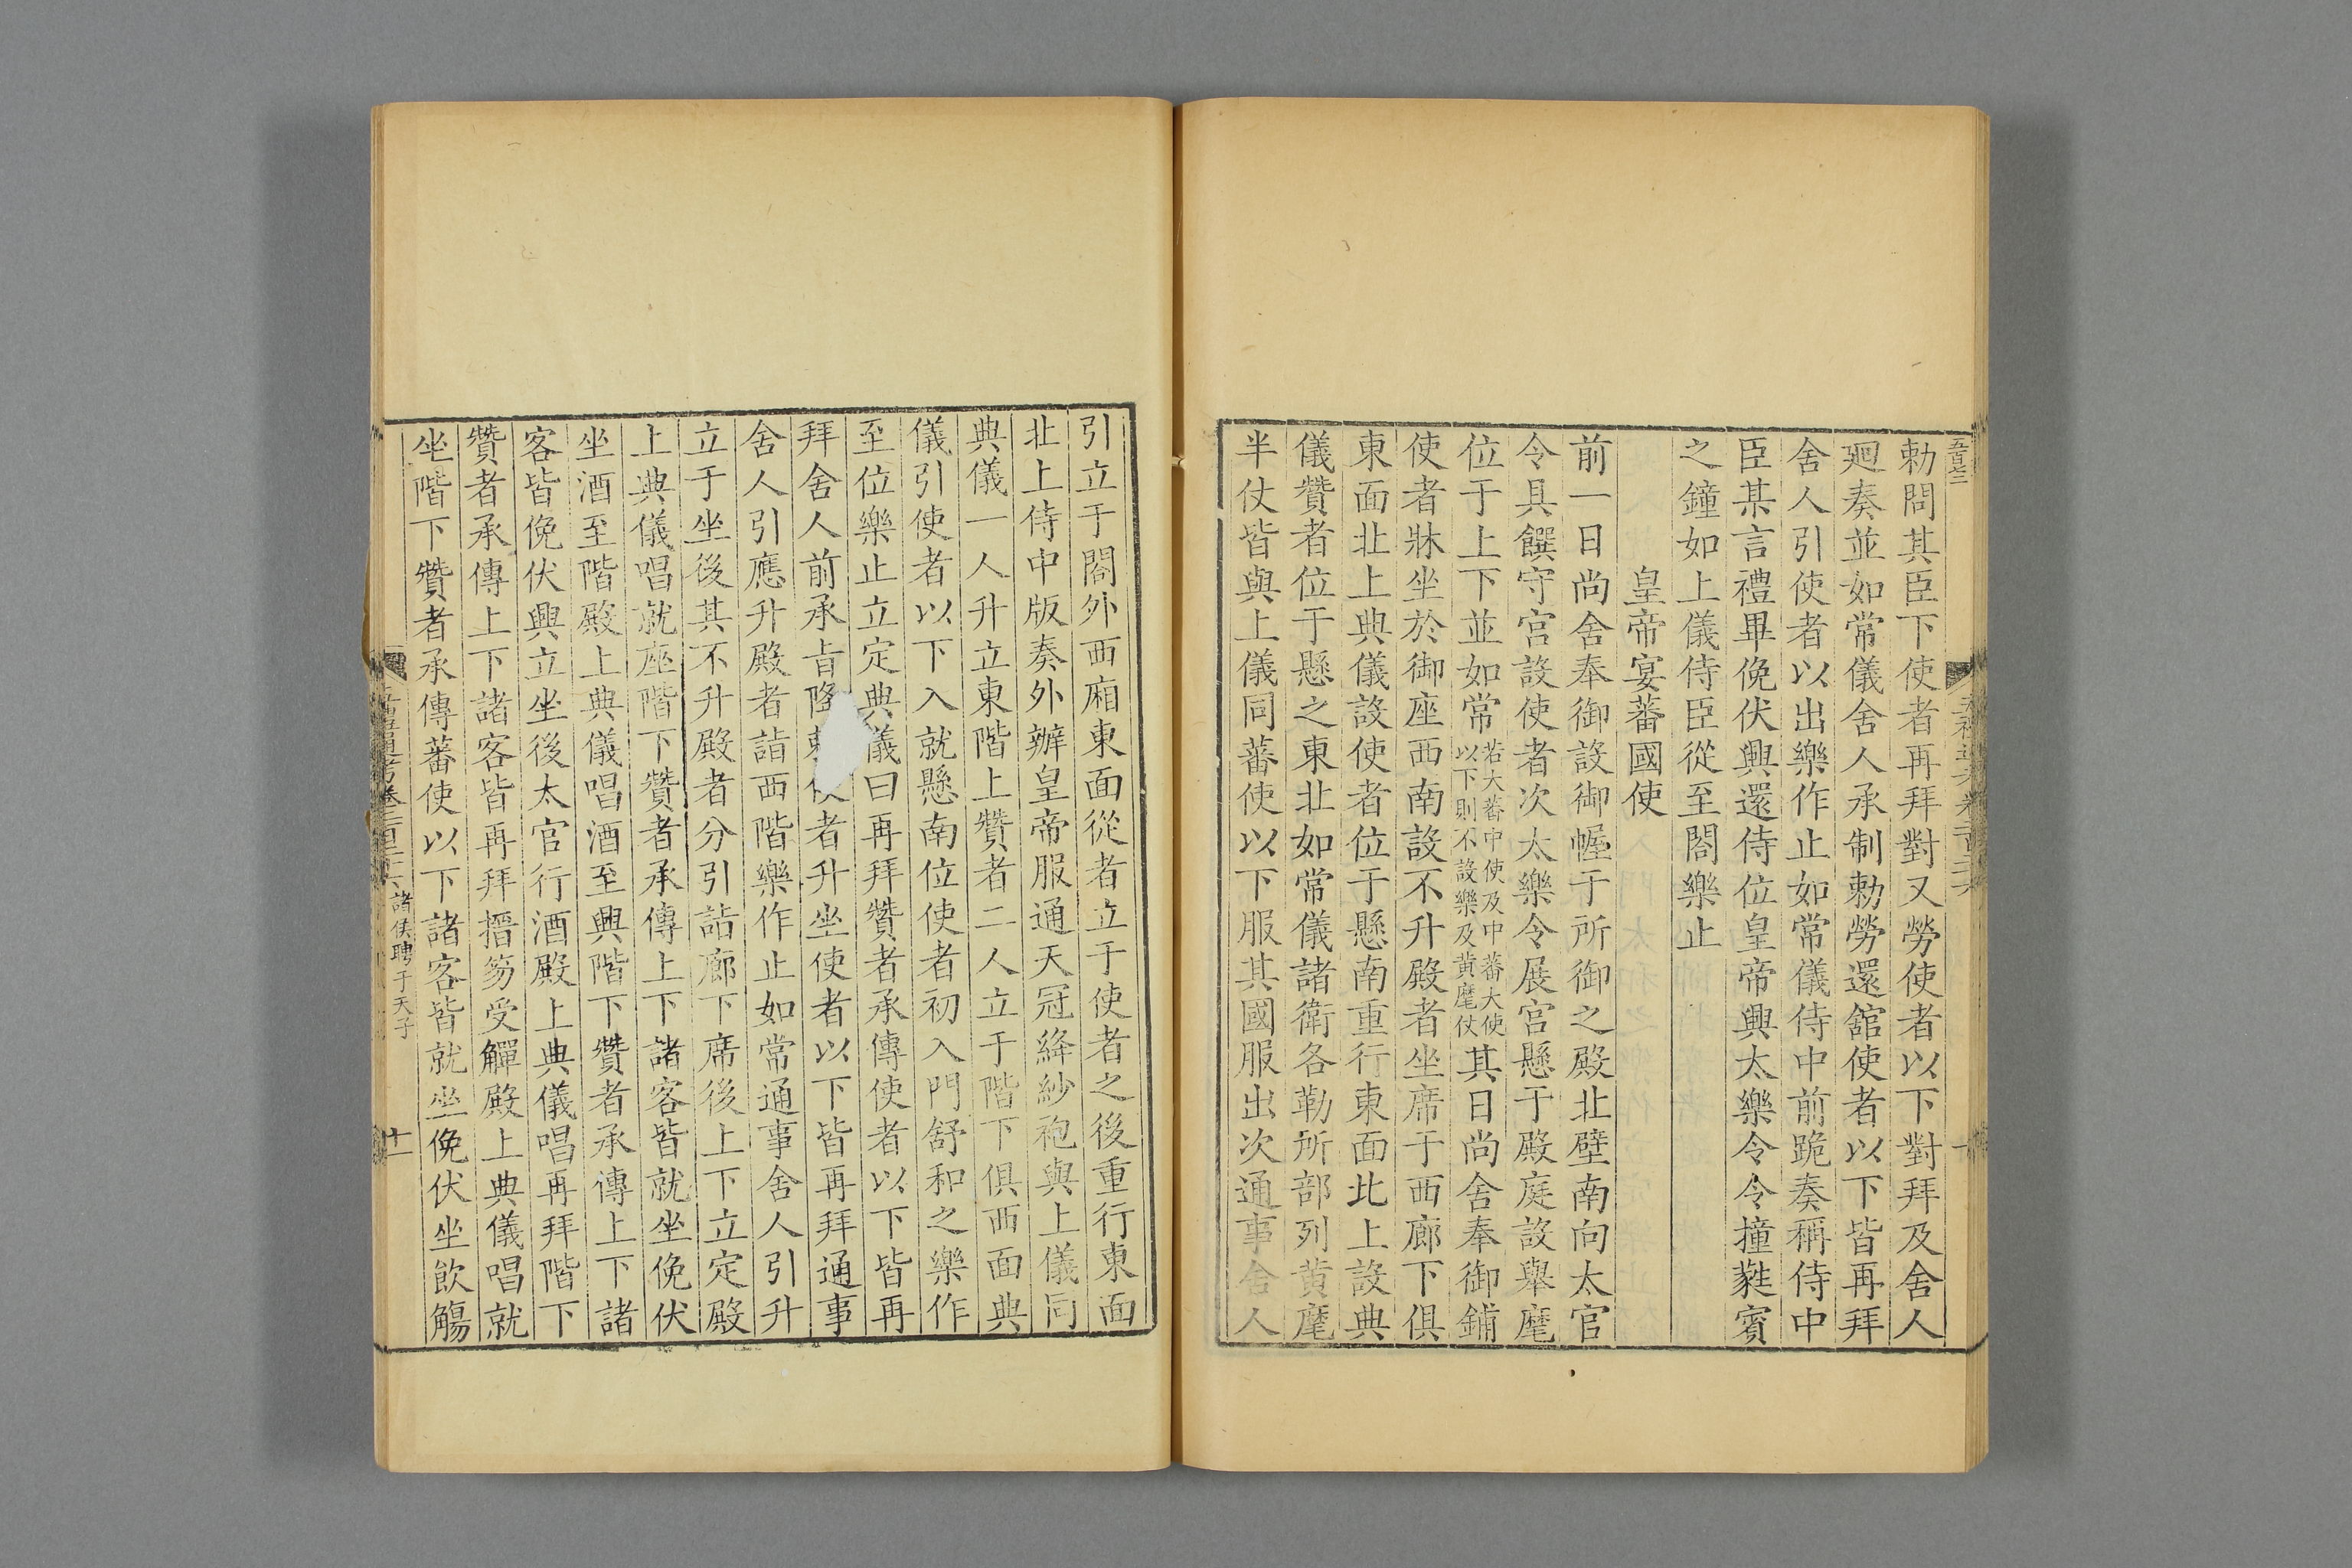 勅問其臣下使者再拜對又勞使者以下對拜及舍人
廻奏並如常儀舍人承制勅勞還舘使者以下皆再拜
舍人引使者以出樂作止如常儀侍中前跪奏稱侍中
臣某言禮畢俛伏興還侍位皇帝興太樂令令撞蕤賓
之鐘如上儀侍臣從至閤樂止
皇帝宴蕃國使
前一日尚舍奉御設御幄于所御之殿北壁南向太官
令具饌守宮設使者次太樂令展宮懸于殿庭設舉麾
位于上下並如常若大蕃中使及中蕃大使以下則不設樂及黄麾仗其日尚舍奉御鋪
使者牀坐於御座西南設不升殿者坐席于西廊下俱
東面北上典儀設使者位于懸南重行東面北上設典
儀贊者位于懸之東北如常儀諸衛各勒所部列黄麾
半仗皆與上儀同蕃使以下服其國服出次通事舍人
引立于閤外西廂東面從者立于使者之後重行東面
北上侍中版奏外辦皇帝服通天冠絳紗袍與上儀同
典儀一人升立東階上贊者二人立于階下俱西面典
儀引使者以下入就懸南位使者初入門舒和之樂作
至位樂止立定典儀曰再拜贊者承傳使者以下皆再
拜舍人前承旨降者升坐使者以下皆再拜通事
舍人引應升殿者詣西階樂作止如常通事舍人引升
立于坐後其不升殿者分引詣廊下席後上下立定殿
上典儀唱就座階下贊者承傳上下諸客皆就坐俛伏
坐酒至階殿上典儀唱酒至興階下贊者承傳上下諸
客皆俛伏興立坐後太官行酒殿上典儀唱再拜階下
贊者承傳上下諸客皆再拜搢笏受觶殿上典儀唱就
坐階下贊者承傳蕃使以下諸客皆就坐俛伏坐飲觴
諸侯聘于天子
十一